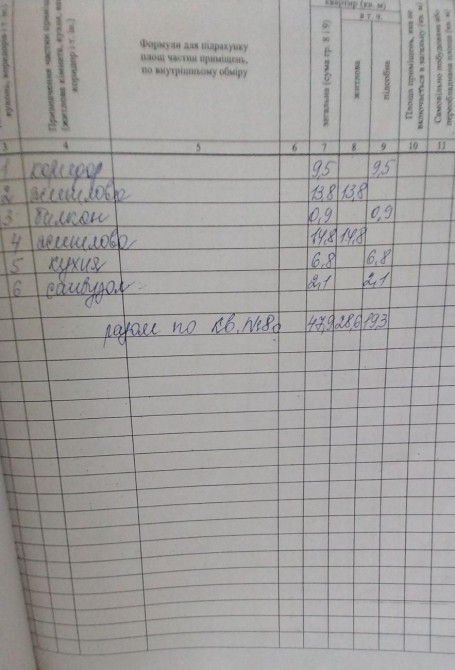 кухонь, коридорі т. ін.)
Призначення частин приміщ
(житлова кімната, кухня, ва
коридор і т. ін.)
Формули для підрахунку
площ частин приміщень,
по внутрішньому обміру
квартир (кв. м)
в т. ч.
загальна (сума гр. 8 і 9)
житлова
підсобна
Площа приміщень, яка не
включається в загальну (кв. м)
Самовільно побудовані або
переобладнані площі (кв. м)
3 4 5 6 7 8 9 10 11
1 коридор 9,5 9,5
2 житлова 13,8 13,8
3 балкон 0,9 0,9
4 житлова 14,8 14,8
5 кухня 6,8 6,8
6 санвузол 2,1 2,1
разом по кв. №80 47,9 28,6 19,3